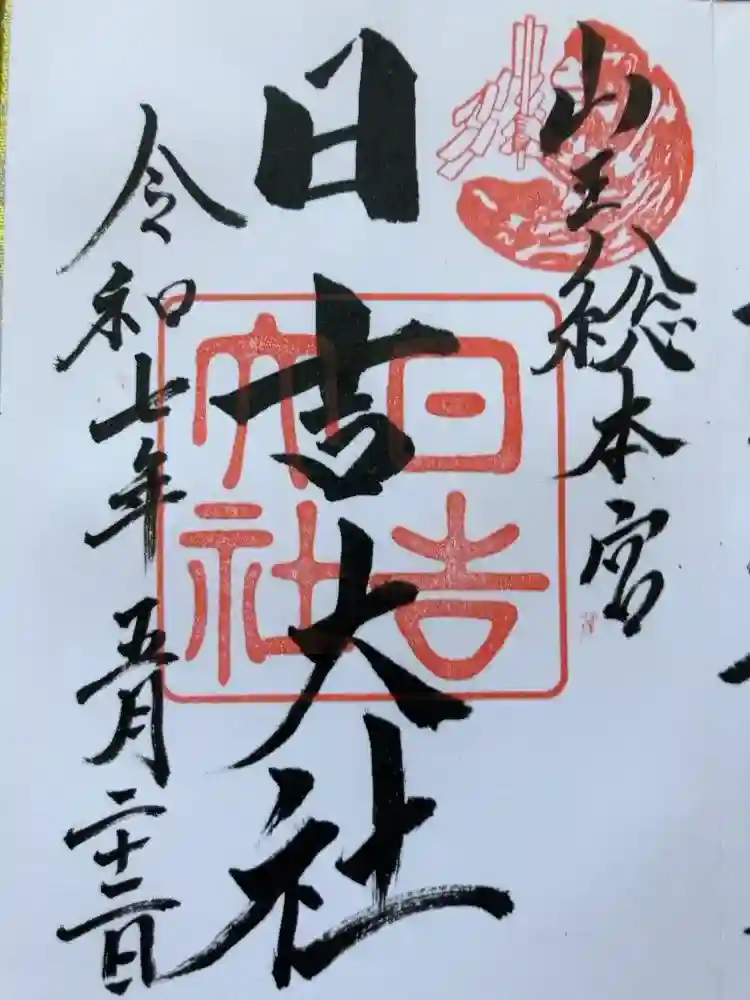 山王総本宮
日吉大社
日吉大社
令和七年五月二十二日